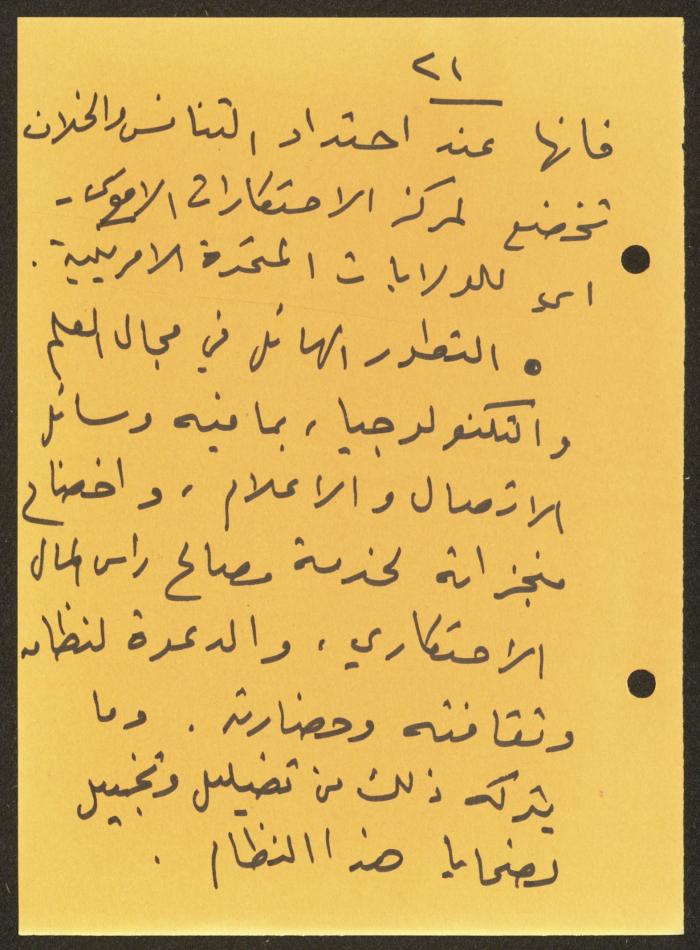 ٢١
فانها عند احتداد التنافس والخلاف
تخضع لمركز الاحتكارات الاقوى -
اي للولايات المتحدة الامريكية .
• التطور الهائل في مجال العلم
والتكنولوجيا ، بما فيه وسائل
الاتصال والاعلام ، واخضاع
منجزاته لخدمة مصالح راس المال
الاحتكاري ، والدعوة لنظامه
وثقافته وحضارته . وما
يتركه ذلك من تضليل وتجهيل
لضحايا هذا النظام .